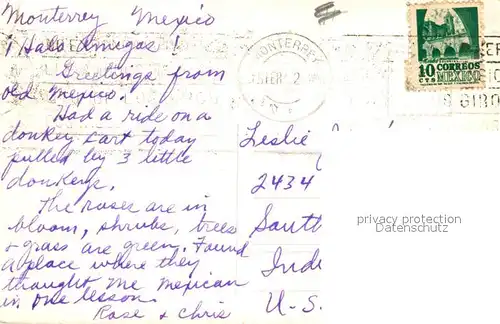 Monterrey Mexico
¡ Halo Amigos !
Greetings from
old Mexico.
Had a ride on a
donkey cart today
pulled by 3 little
donkeys.
The roses are in
bloom, shrubs, trees
+ grass are green. Found
a place where they
thought me Mexican
in one lesson.
Rose + Chris
MONTERREY
10 CORREOS
CTS MEXICO
GIRO
Leslie
2434
South
Indi
U-S.
privacy protection
Datenschutz